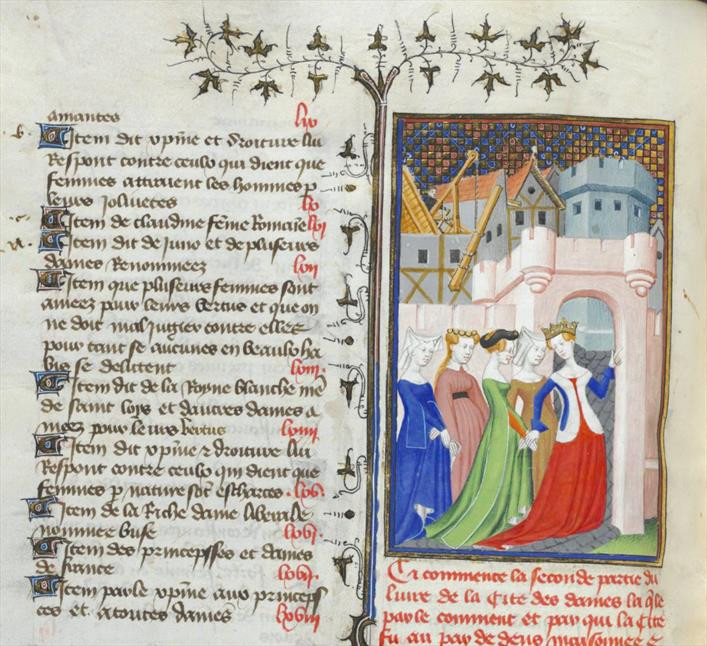 amantes lix
Item dit xpine et droiture lui
Respont contre ceulx qui dient que
femmes attraient les hommes p
leurs jolivetes lx
Item de claudine feme Romaine lxi
Item dit de juno et de plusieurs
dames Renommeez lxii
Item que plusieurs femmes sont
ameez pour leurs vertus et que on
ne doit mal jugier contre elles
pour tant se aucunes en beaulx ha
bis se delitent lxiii
Item dit de la Royne blanche me
de saint loys et dautres dames a
meez pour leurs vertus lxiiii
Item dit xpine et droiture lui
Respont contre ceulx qui dient que
femmes p nature sont escharces lxv
Item de la Riche dame liberale
nommee buse lxvi
Item des princepsses et dames
de france lxvii
Item parle xpine aux princepss
ces et a toutes dames lxviii
Cy commence la seconde partie du
livre de la Cite des dames la qle
parle comment et par qui la Cite
fu au par de dens massonnee e